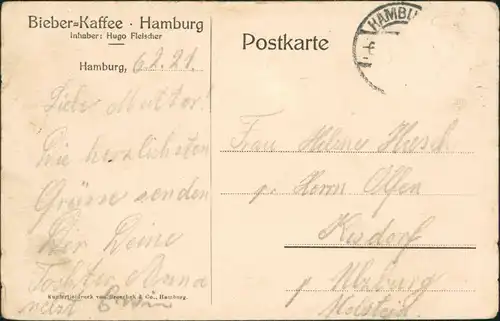 Bieber=Kaffee · Hamburg
Inhaber: Hugo Fleischer
Hamburg, 6.2.21.
Liebe Mutter!
Die herzlichsten
Grüsse senden
Dir Deine
Tochter Anna
nebst Erwin
Kunstertiefdruck von & Co., Hamburg.
Postkarte
HAMBU
Frau Helene
p. Herrn Olfen
Kisdorf
p Ulzburg
Holstein.